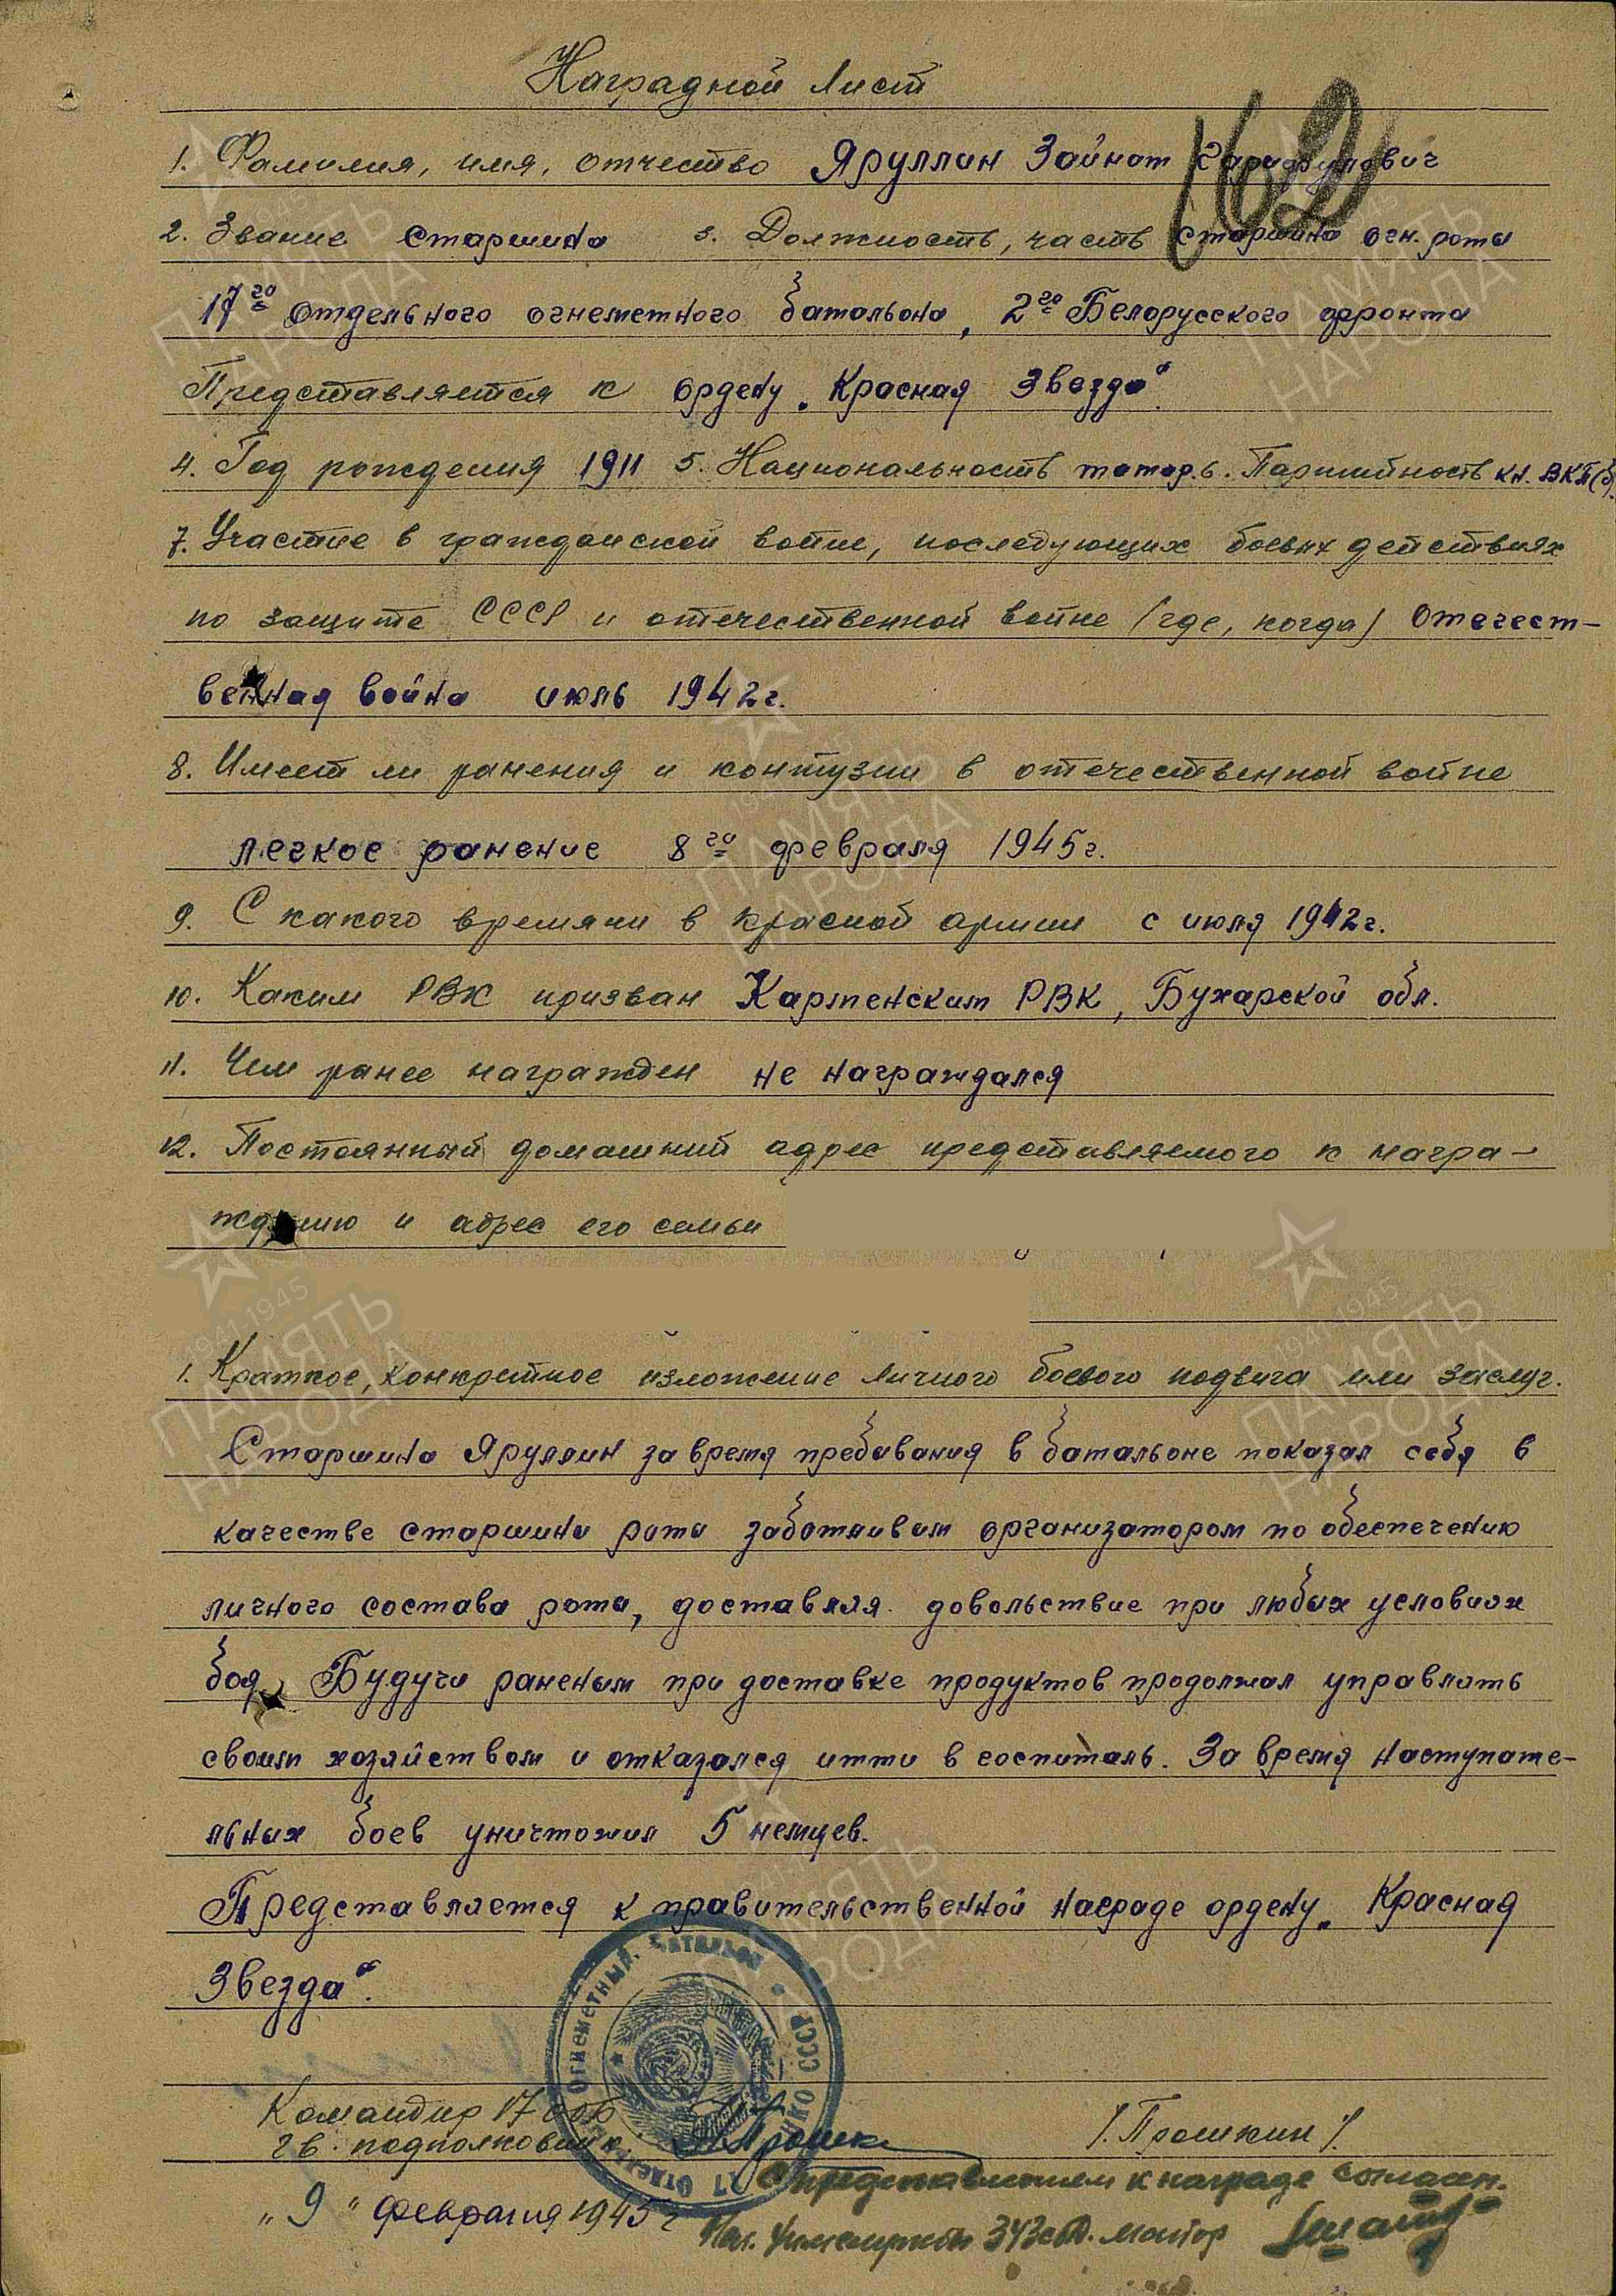 Наградной Лист
162
1. Фамилия, имя, отчество Яруллин Зайнат Гарифулович
2. Звание старшина 3. Должность, часть старшина огн. роты
17го отдельного огнеметного батальона, 2го Белорусского фронта
Представляется к ордену „Красная Звезда".
4. Год рождения 1911 5. Национальность татар. 6. Партийность кн. ВКП(б).
7. Участие в гражданской войне, последующих боевых действиях
по защите СССР и отечественной войне (где, когда) Отечест-
венная война июль 1942г.
8. Имеет ли ранения и контузии в отечественной войне
легкое ранение 8го февраля 1945г.
9. С какого времяни в красной армии с июля 1942г.
10. Каким РВК призван Карменским РВК, Бухарской обл.
11. Чем ранее награжден не награждался
12. Постоянный домашний адрес представляемого к награ-
ждению и адрес его семьи
1. Краткое, конкретное изложение личного боевого подвига или заслуг.
Старшина Яруллин за время пребывания в батальоне показал себя в
качестве старшины роты заботливым организатором по обеспечению
личного состава роты, доставляя довольствие при любых условиях
боя. Будучи раненым при доставке продуктов продолжал управлять
своим хозяйством и отказался итти в госпиталь. За время наступате-
льных боев уничтожил 5 немцев.
Представляется к правительственной награде ордену „Красная
Звезда".
Отдельный Огнеметный батальон НКО СССР 17
Командир 17 ооб
гв. подполковник
/. Прошкин /.
С представлением к награде согласен.
„9" февраля 1945г
Нач. Химслужбы 343 сд. майор
1941-1945
ПАМЯТЬ
НАРОДА